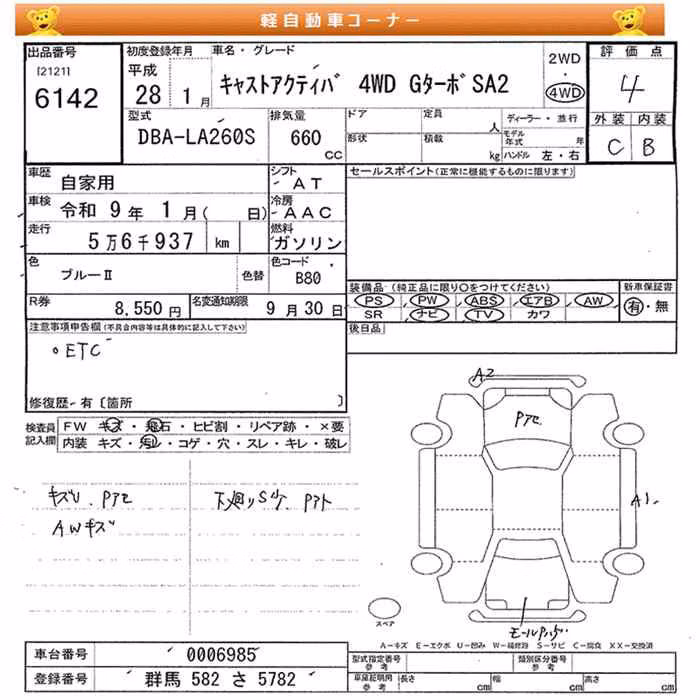 軽自動車コーナー
出品番号
[2121]
6142
初度登録年月
平成
28 1月
車名・グレード
キャストアクティバ 4WD GターボSA2
2WD
・
4WD
評価点
4
外装 内装
C B
型式
DBA-LA260S
排気量
660
CC
ドア
形状
定員
人
積載
kg
ディーラー・並行
モデル年式 年
ハンドル 左・右
車歴
自家用
シフト
AT
セールスポイント(正常に機能するものに限ります)
車検
令和 9年 1月( 日)
冷房
AAC
走行
5万6千937 km
燃料
ガソリン
色
ブルーⅡ
色替
色コード
B80
装備品(純正品に限り○をつけてください)
PS PW ABS エアB AW
SR ナビ TV カワ
新車保証書
有・無
R券
8,550円
名変通知期限
9月30日
後日品
注意事項申告欄(不具合内容等は具体的に記入して下さい)
○ETC
修復歴-有〔箇所 〕
検査員記入欄
FW キズ・飛石・ヒビ割・リペア跡・×要
内装 キズ・汚レ・コゲ・穴・スレ・キレ・破レ
A2
キズU.
AWキズ
下廻りS
A1
スペア
A-キズ E-エクボ U-凹み W-補修跡 S-サビ C-腐食 XX-交換済
車台番号 0006985
登録番号 群馬 582 さ 5782
型式指定番号 参考
類別区分番号 参考
車庫証明用 参考
長さ cm
幅 cm
高さ cm